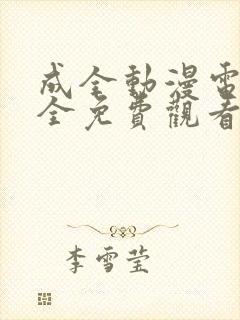 成全動漫電
全免費觀看
李雪莹